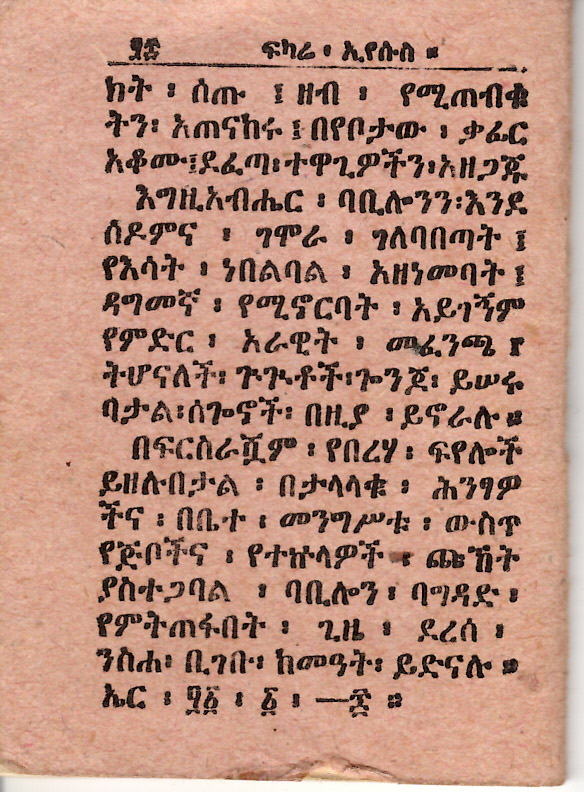 ፶፭ ፍካሬ ፡ ኢየሱስ ።
ክት ፡ ሰጡ ፤ ዘብ ፡ የሚጠብቁ
ትን፡ አጠናከሩ ፤ በየቦታው ፡ ቃፊር
አቆሙ፤ደፈጣ፡ተዋጊዎችን፡አዘጋጁ
እግዚአብሔር ፡ ባቢሎንን፡እንደ
ሰዶምና ፡ ገሞራ ፡ ገለባበጣት ፤
የእሳት ፡ ነበልባል ፡ አዘነመባት ፤
ዳግመኛ ፡ የሚኖርባት ፡ አይገኝም
የምድር ፡ አራዊት ፡ መፈንጫ ፤
ትሆናለች፡ ጕጕቶች፡ጐንጆ፡ ይሠሩ
ባታል፡ሰጐኖች፡ በዚያ ፡ይኖራሉ ።
በፍርስራሿም ፡ የበረሃ ፡ ፍየሎች
ይዘሉበታል ፡ በታላላቁ ፡ ሕንፃዎ
ችና ፡ በቤተ ፡ መንግሥቱ ፡ ውስጥ
የጅቦችና ፡ የተኵላዎች ፡ ጩኸት
ያስተጋባል ፡ ባቢሎን ፡ ባግዳድ ፡
የምትጠፋበት ፡ ጊዜ ፡ ደረሰ ፡
ንስሐ፡ ቢገቡ፡ ከመዓት፡ ይድናሉ ።
ኤር ፡ ፶፩ ፡ ፩ ፡ —፷ ።